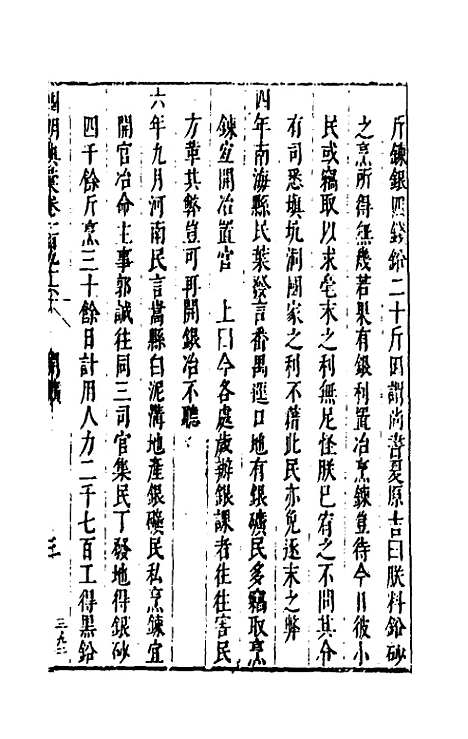 斤鍊銀四錢鉛二十斤因謂尚書夏原吉曰朕料鉛砂
之烹所得無幾若果有銀利置冶烹鍊豈待今日彼小
民或竊取以求毫末之利無足怪朕已宥之不問其令
有司悉填坑洞國家之利不藉此民亦免逐末之弊
四年南海縣民葉發言番禺逕口地有銀礦民多竊取烹
鍊宜開冶置官　上曰今各處歲辦銀課者往往害民
方革其弊豈可再開銀冶不聽
六年九月河南民言嵩縣白泥溝地產銀礦民私烹鍊宜
開官冶命主事郭誠往同三司官集民丁發地得銀砂
四千餘斤烹三十餘日計用人力二千七百工得黑鉛
卷之一百九十六
開礦